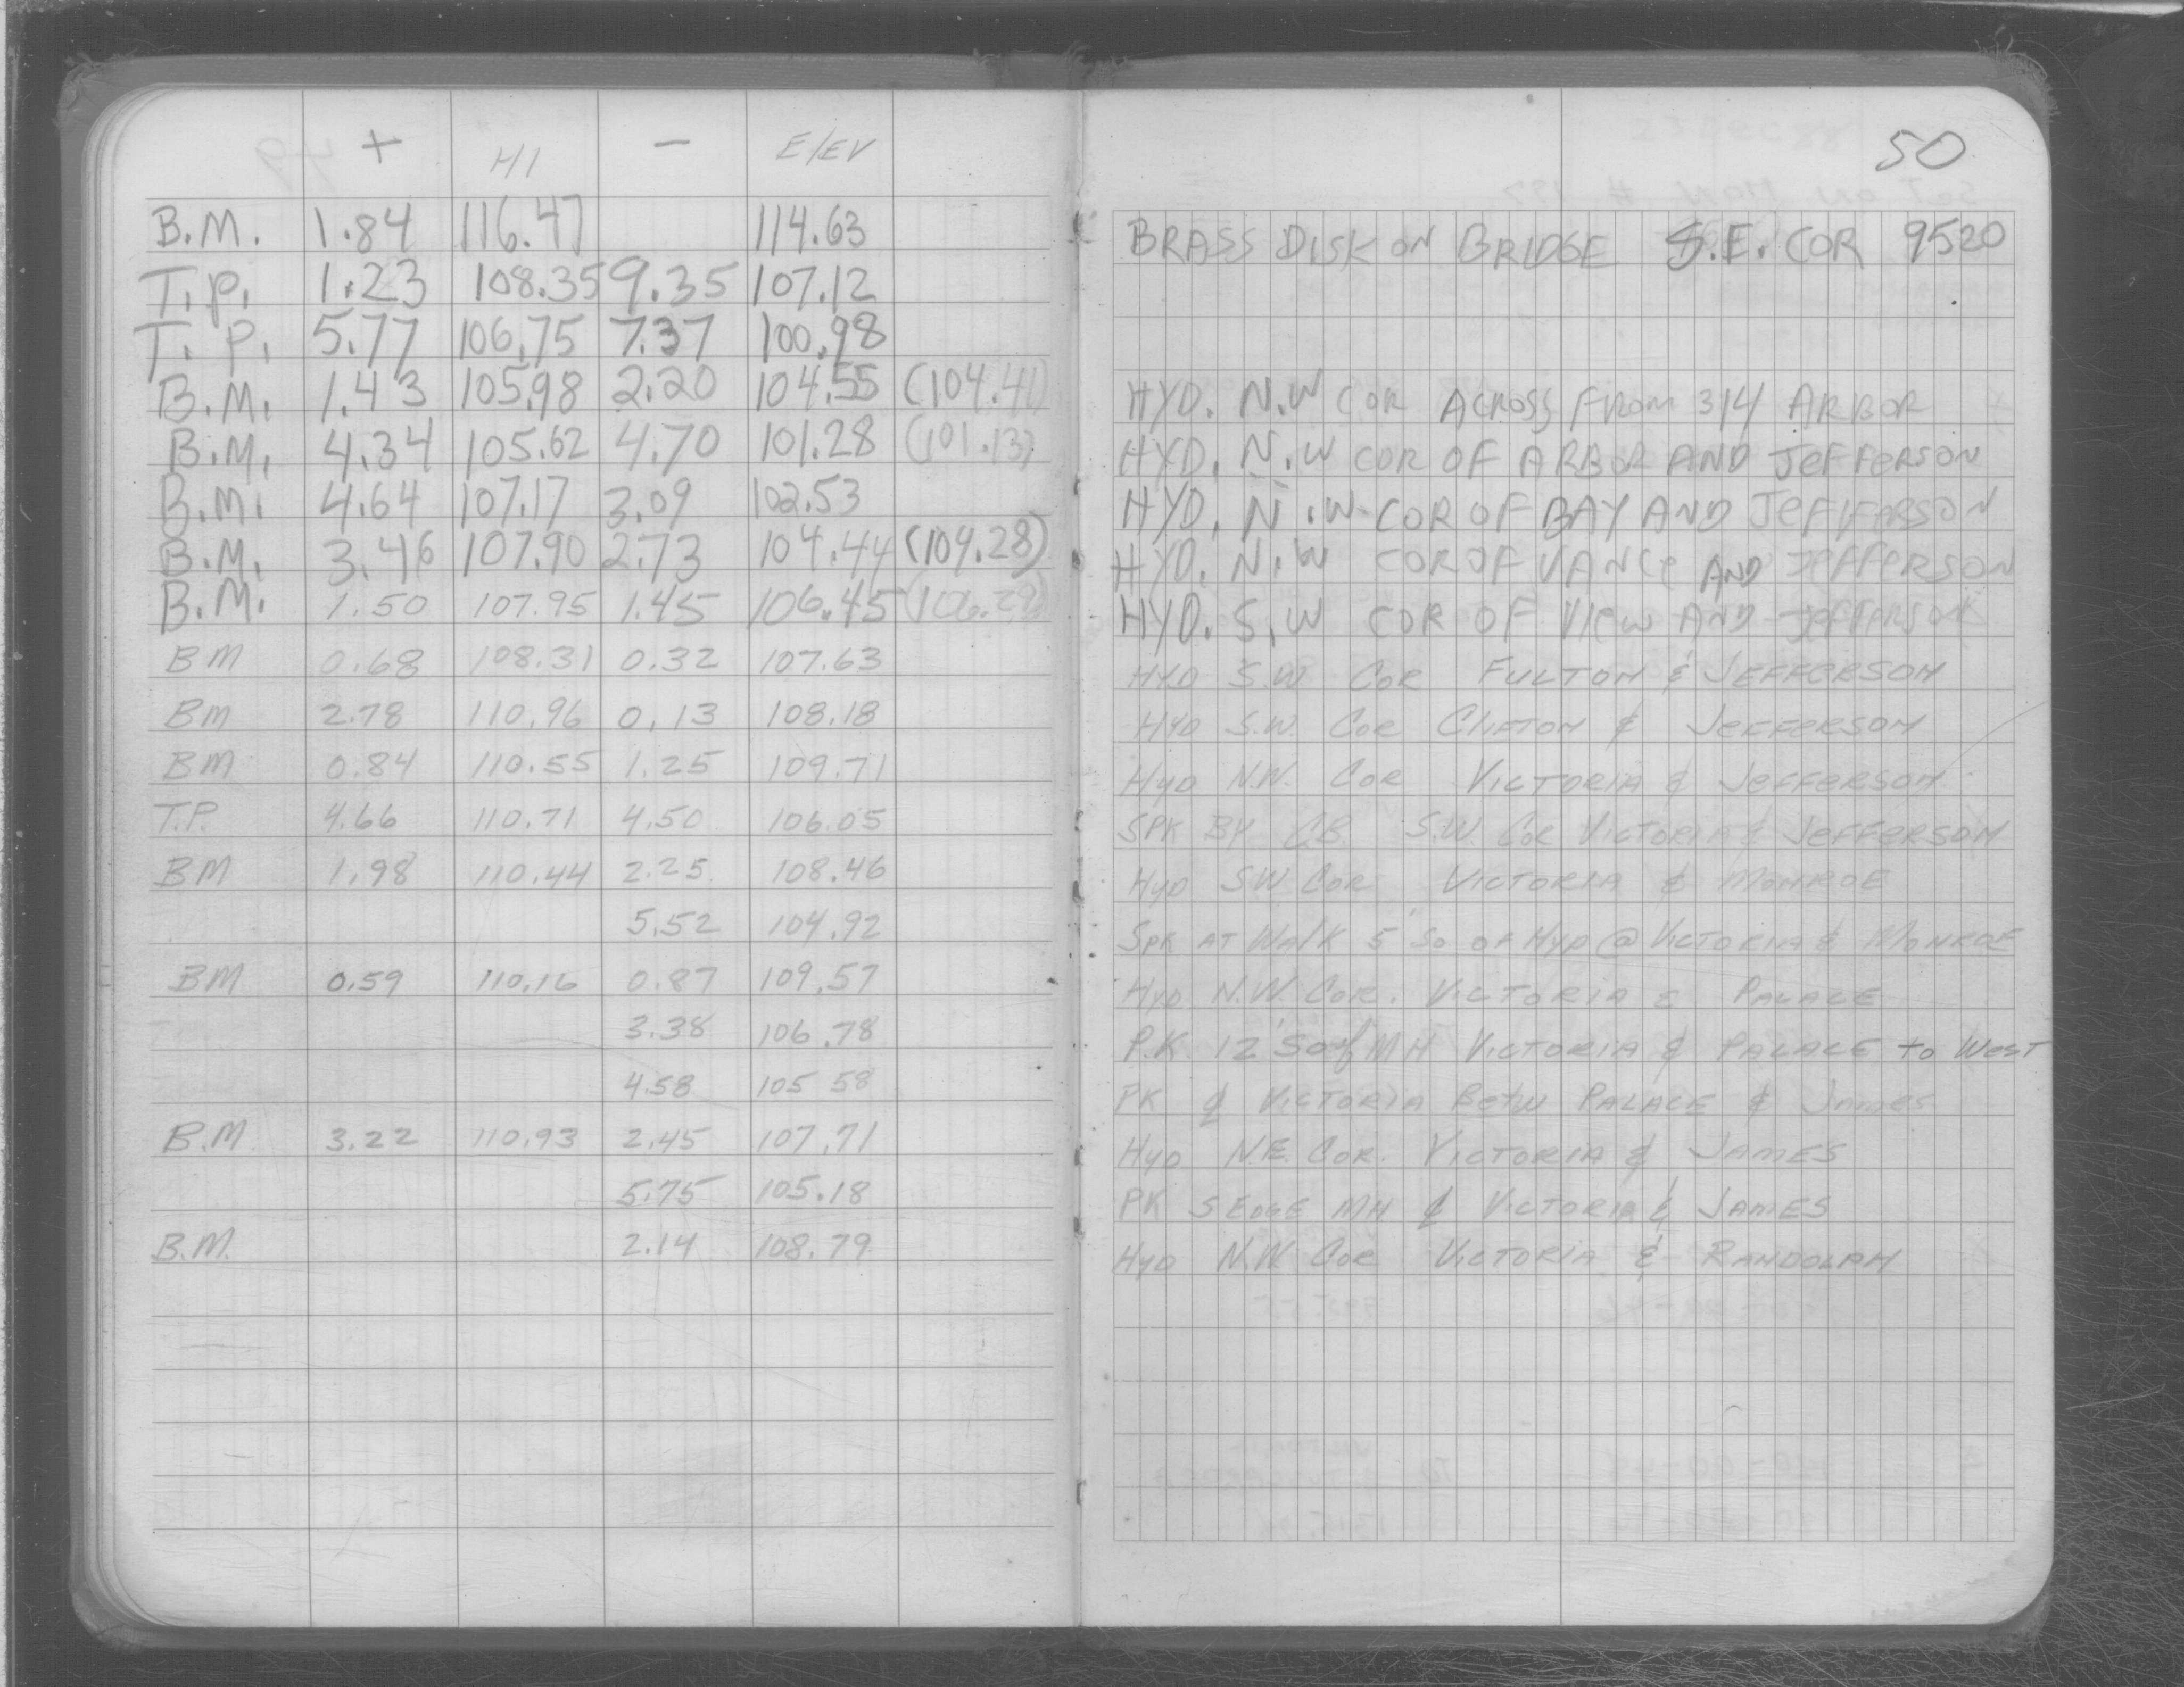 + HI - ELEV
B.M. 1.84 116.47 114.63
T.P. 1.23 108.35 9.35 107.12
T.P. 5.77 106.75 7.37 100.98
B.M. 1.43 105.98 2.20 104.55 (104.41)
B.M. 4.34 105.62 4.70 101.28 (101.13)
B.M. 4.64 107.17 3.09 102.53
B.M. 3.46 107.90 2.73 104.44 (104.28)
B.M. 1.50 107.95 1.45 106.45
BM 0.68 108.31 0.32 107.63
BM 2.78 110.96 0.13 108.18
BM 0.84 110.55 1.25 109.71
T.P. 4.66 110.71 4.50 106.05
BM 1.98 110.44 2.25 108.46
5.52 104.92
BM 0.59 110.16 0.87 109.57
3.38 106.78
4.58 105 58
B.M. 3.22 110.93 2.45 107.71
5.75 105.18
B.M. 2.14 108.79
50
BRASS DISK ON BRIDGE S.E. COR 9520
HYD. N.W COR ACROSS FROM 314 ARBOR
HYD. N.W COR OF ARBOR AND JEFFERSON
HYD. N.W. COR OF BAY AND JEFFERSON
HYD. N.W COR OF VANCE AND JEFFERSON
HYD. S.W COR OF VIEW AND JEFFERSON
HYD S.W COR FULTON & JEFFERSON
HYD S.W. COR CLIFTON & JEFFERSON
HYD N.W. COR VICTORIA & JEFFERSON
SPK BY CB. S.W. COR VICTORIA & JEFFERSON
HYD SW COR VICTORIA & MONROE
SPK AT WALK 5' SO OF HYD @ VICTORIA & MONROE
HYD N.W. COR. VICTORIA & PALACE
P.K. 12' SO of MH VICTORIA & PALACE to WEST
PK ₵ VICTORIA BETW PALACE & JAMES
HYD N.E. COR. VICTORIA & JAMES
PK S EDGE MH ₵ VICTORIA & JAMES
HYD N.W. COR VICTORIA & RANDOLPH